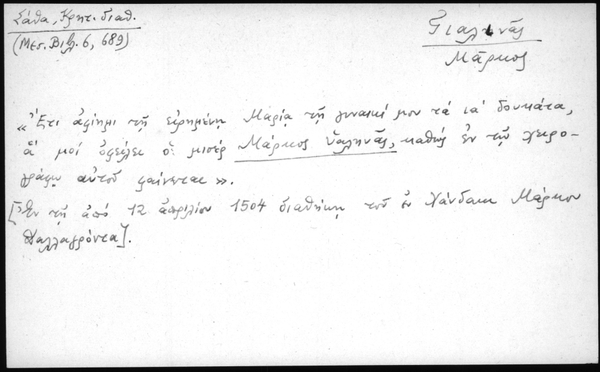 Σάθα, Κρητ. διαθ.
(Μεσ. Βιβλ. 6, 689)
Γιαλινᾶς
Μᾶρκος
«Ἔτι ἀφίημι τῇ εἰρημένῃ Μαρίᾳ τῇ γυναικί μου τά ια΄ δουκάτα,
ἅ μοί ὀφείλει ὁ μισέρ Μάρκος Ὑαληνᾶς, καθώς ἐν τῷ χειρο-
γράφῳ αὐτοῦ φαίνεται».
[Ἐν τῇ ἀπό 12 ἀπριλίου 1504 διαθήκῃ τοῦ ἐν Χάνδακι Μάρκου
]